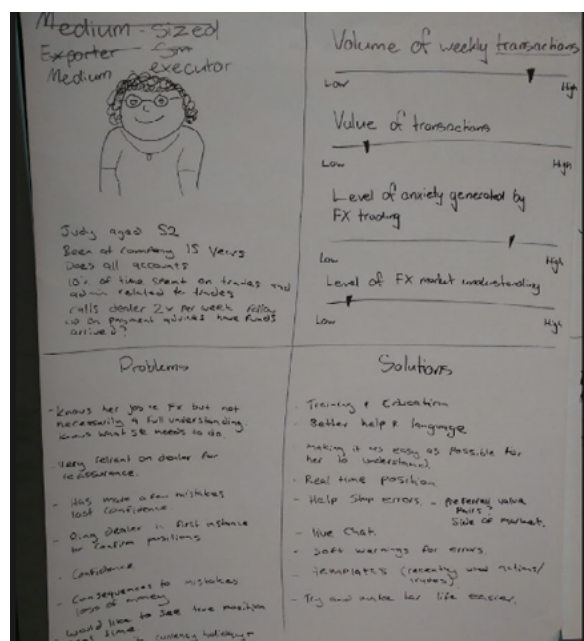 Medium - sized
Exporter - Sam
Medium - executor
Judy aged 52
Been at company 15 Years
Does all accounts
10% of time spent on trades and
admin related to trades
calls dealer 2x per week follow
up on payment advices have funds
arrived?
Volume of weekly transactions
Low High
Value of transactions
Low High
Level of anxiety generated by
FX trading
Low High
Level of FX market understanding
Low High
Problems
- Knows her job re Fx but not
necessarily a full understanding.
Knows what she needs to do.
- Very reliant on dealer for
reassurance.
- Has made a few mistakes
lost confidence
- Ring dealer in first instance
to confirm positions
- Confidence
- Consequences to mistakes
loss of money
- Would like to see live position
real time
currency holidays
Solutions
- Training & Education
- Better help & language
- Making it as easy as possible for
her to understand.
- Real time position
- Help stop errors. - preferred value
Pairs?
Side of market.
- live chat.
- Soft warnings for errors.
- templates (recently used actions/
trades)
- Try and make her life easier.